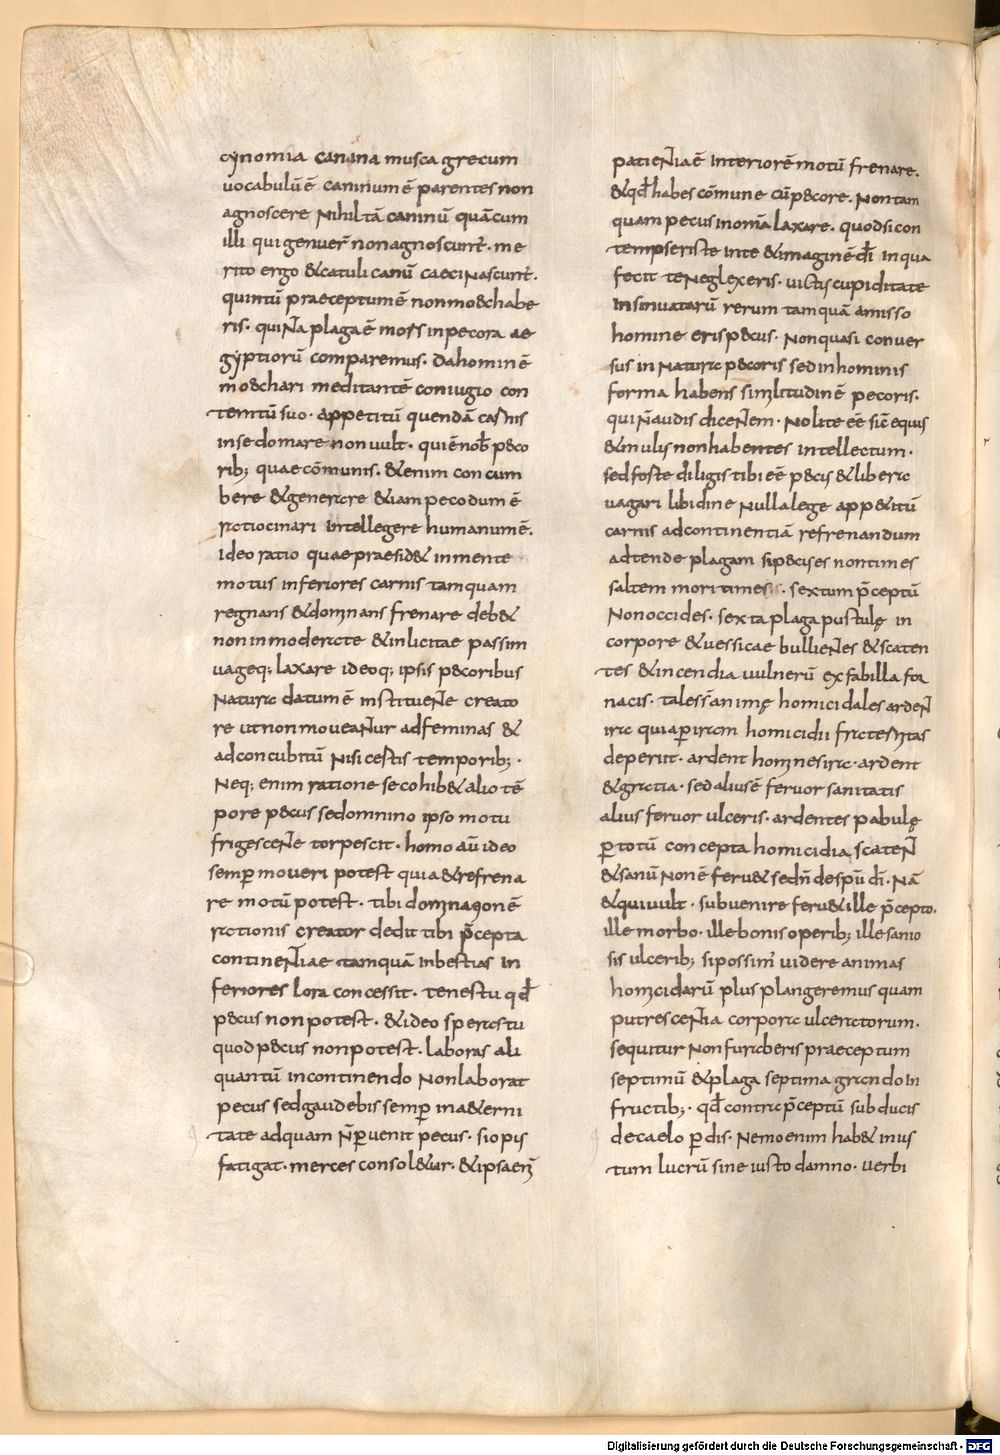 cynomia canina musca grecum
uocabulū ē caninum ē parentes non
agnoscere Nihil tā caninū quācum
illi qui genuer̄ non agnoscunt · me
rito ergo & catuli canū caeci Nascunt̄ ·
quintū praeceptum ē non moechabe
ris · quiNta plaga ē mors in pecora ae
gyptiorū comparemus · Dahominē
moechari meditantē coniugio con
temtū suo · appetitū quendā carnis
inse domare non uult · qui ē nob̄ p&co
rib; quae cōmunis · &enim con cum
bere & generare &iam pecodum ē
ratiocinari intellegere humanum ē ·
ideo ratio quae praesid& in mente
motus inferiores carnis tamquam
regnans & dominans frenare deb&
non inmoderate & inlicitae passim
uageq; laxare ideoq; ipsis p&coribus
Natura datum ē institueNte creato
re ut non moueaNtur ad feminas &
ad concubitū Nisi certis temporib; ·
Neq; enim ratione se cohib& alio tē
pore p&cus sed omnino ipso motu
frigesceNte torpescit · homo aū ideo
semp̄ moueri potest quia & refrena
re motū potest · tibi dominationē
rationis creator dedit tibi p̄cepta
contineNtiae tamquā in bestias in
feriores lora concessit · tenes tu qd̄
p&cus non potest · & ideo speras tu
quod p&cus non potest · laboras ali
quantū in continendo Non laborat
pecus sed gaudebis semp̄ in a&erni
tate ad quam N̄ p̄uenit pecus · si opis
fatigat · merces consol&ur · & ipsa enī
patieNtia ē interiorē motū frenare ·
& qd̄ habes cōmune cū p&core · Non tam
quam pecus in om̄ia laxare · quod si con
tempseris te in te & imaginē dī in qua
fecit te Neglexeris · uictis cupiditate
insinuatarū rerum tamquā amisso
homine eris p&cus · Non quasi conuer
sus in Natura p&coris sed in hominis
forma habens similitudinē pecoris ·
qui N̄ audis diceNtem · Nolite ēe sic̄ equis
& mulis non habentes intellectum ·
sed forte diligis tibi eē p&cis & libera
uagari libidine Nulla lege app&itū
carnis ad continentiā refrenandum
adtende plagam si p&cis es non times
saltem mori times · sextum p̄ceptū
Non occides · sexta plaga pustulę in
corpore & uessicae bullieNtes & scaten
tes & incendia uulnerū ex fabilla for
nacis · tales s̄ animę homicidales ardeNt
ira quia p̄ iram homicidii fraternitas
deperiit · ardent homines ira · ardent
& gratia · sed alius ē feruor sanitatis
alius feruor ulceris · ardentes pabulę
p̄ totū concepta homicidia scateNt
& sanū Non ē feru& sed n̄ de sp̄u dī · Nā
& qui uult · subuenire feru& ille p̄cepto ·
ille morbo · ille bonis operib; ille sanio
sis ulcerib; si possim̄ uidere animas
homicidarū plus plangeremus quam
putresceNtia corpora ulceratorum ·
sequitur Non furaberis praeceptum
septimū & plaga septima grando in
fructib; · qd̄ contra p̄ceptū subducis
de caelo p̄dis · Nemo enim hab& inius
tum lucrū sine iusto damno · uerbi
Digitalisierung gefördert durch die Deutsche Forschungsgemeinschaft - DFG